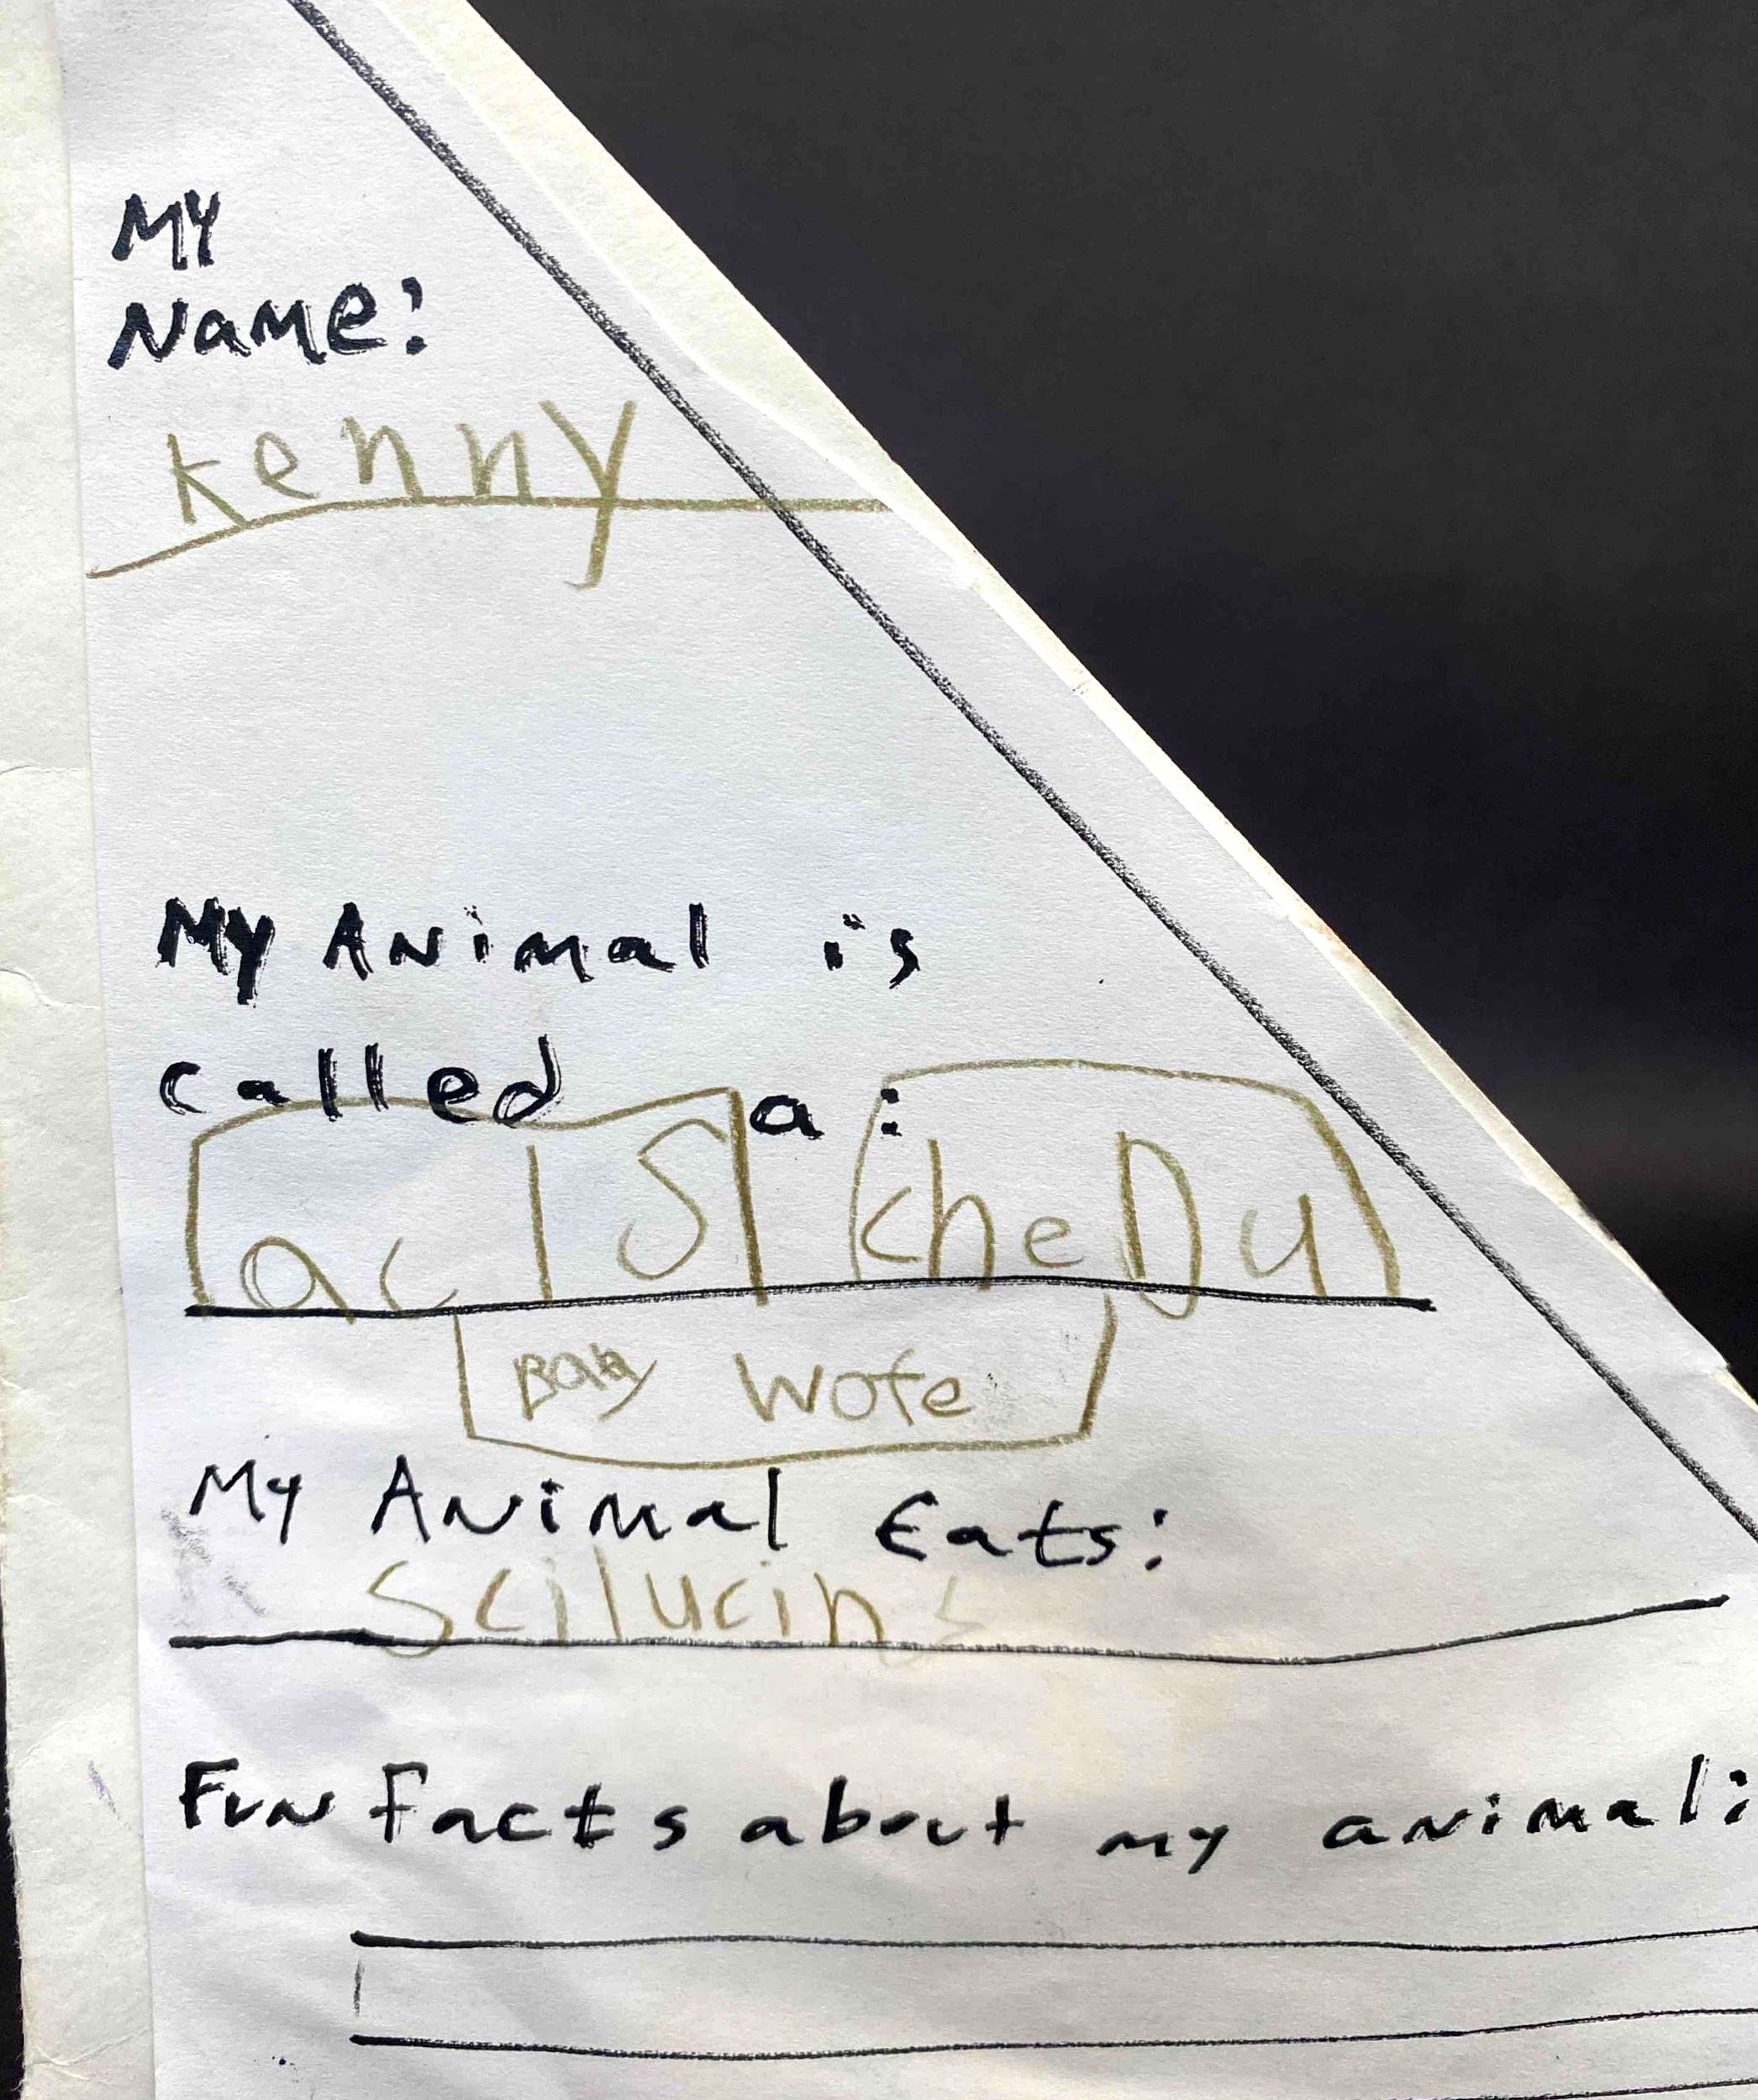 MY
Name:
kenny
My Animal is
called a:
acIS cheDu
Baby wofe
My Animal Eats:
Scilucins
Fun facts about my animal: